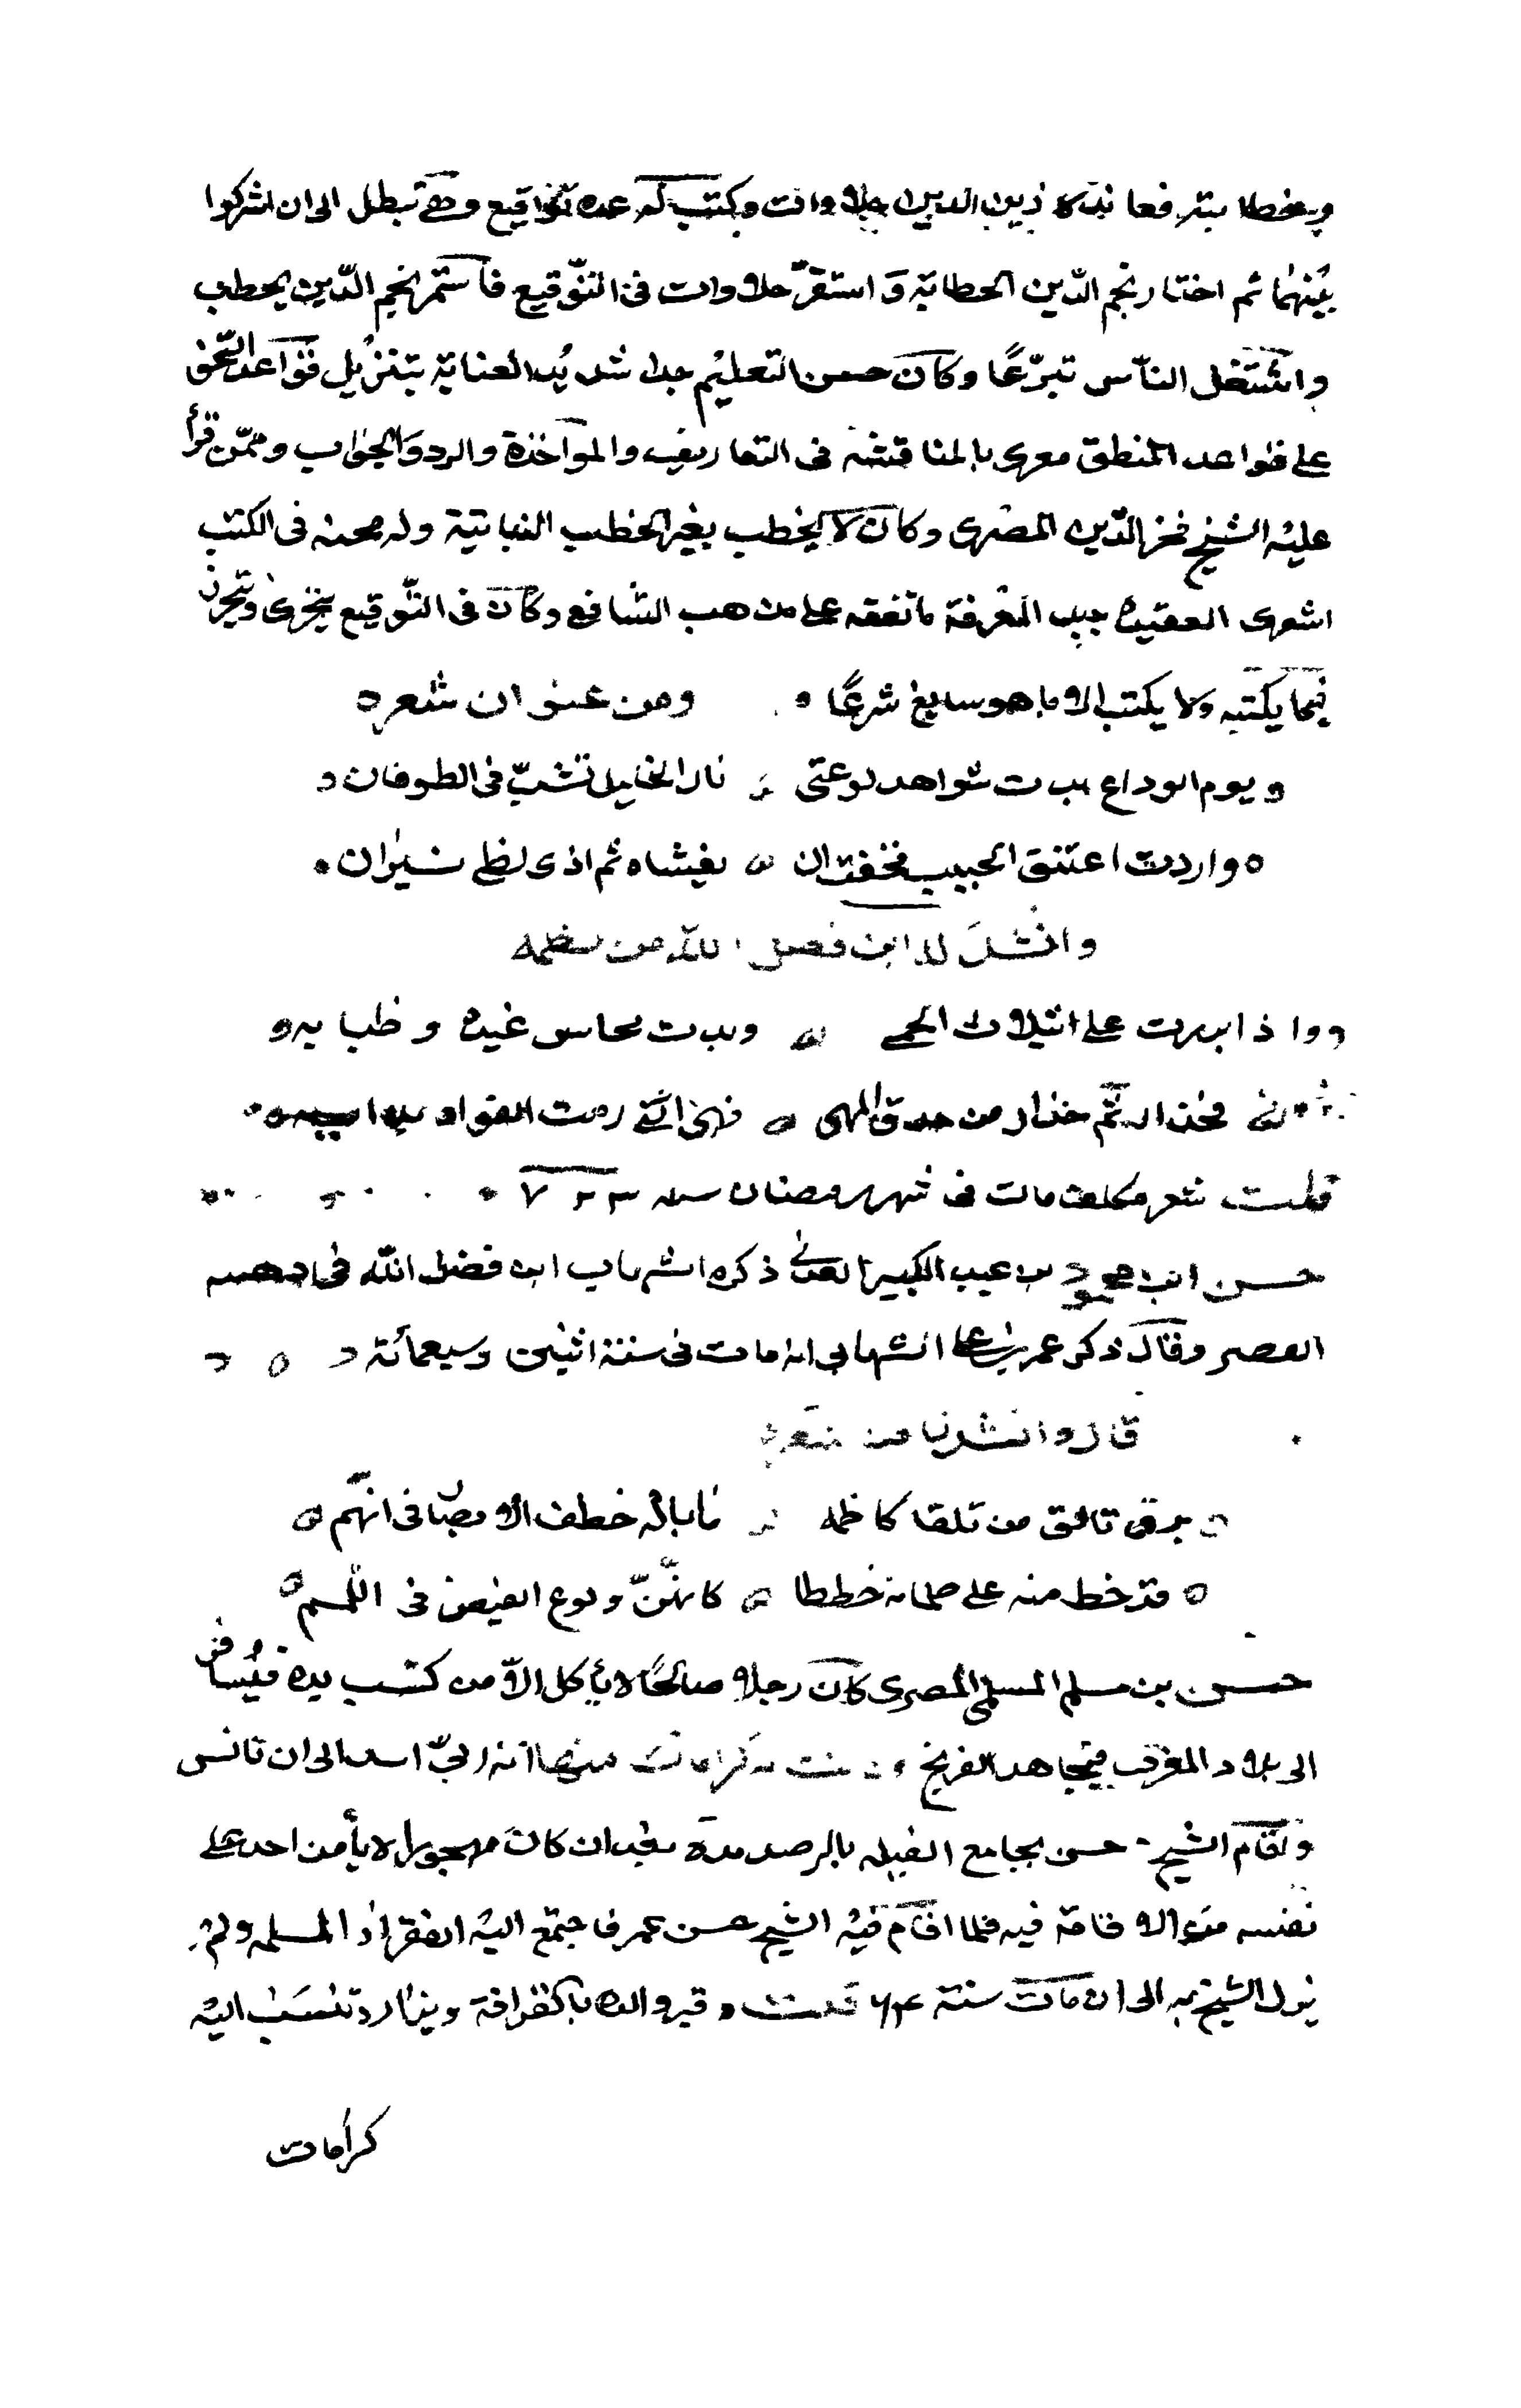 ويخطا بتر فعا نده زين الدين حلاوات وكتب له عدة تواقيع وهى تبطل الى ان اشركوا
بينهما ثم اختار نجم الدّين الخطابة وَاستقرّ حلاوات فى التّوقيع فاستمر نجم الدّين يخطب
واشتغل الناس تبرّعًا وكان حسن التعليم جدا شديد العناية بتنزيل قواعد النّحو
على قواعد المنطق معرى بالمناقشة فى التعاريف والمواخذة والرد وَالجواب وممّن قرأ
عليه الشيخ فخر الدّين المصرى وكان لا يخطب بغير الخطب النباتية وله محنة فى الكتب
اشعرى العقيدة جيد المعرفة ما تفقه على مذهب الشافعى وكان فى التّوقيع يتحرى ويتحرز
فيما يكتبه ولا يكتب الا ما هو سايغ شرعًا ومن عنوان شعره
ويوم الوداع بدت شواهد لوعتى نار الخليل تشبّ فى الطوفان
واردت اعتنق الحبيب فخفت ان يغشاه ثم اذى لظى نيران
وانشد له ابن فضل الله من نظمه
واذا مررت على اثيلات الحمى وبدت محاسن غيده وظبايه
فحذار ثم حذار من حدق المهى فهى التى رمت الفواد بدايه
قلت شعر مكلف مات فى شهر رمضان سنة ٧٢٣
حسن ابن محمود بن عبد الكبير العدنى ذكره الشهاب ابن فضل الله فى
العصر وقال ذكر عمر بن على الشهابى انه مات فى سنة اثنين وسبعمائة
قال وانشدنا من شعره
برق تالق من تلقا كاظمه ما باله خطف الابصار فى اضم
قد خط منه على خططا كانهنّ ولوع البيض فى اللمم
حسن بن مسلم المسلمى المصرى كان رجلا صالحًا لا يأكل الاّ من كسب يده فيُسافر
الى بلاد المغرب فيجاهد الفرنج كرامات منها انه ربىّ اسدا الى ان تانس
واقام الشيخ حسن بجامع الفيله بالرصد مدة بعد ان كان مهجورا لا يأمن احد على
نفسه من الاقامة فيه فلما اقام فيه الشيخ حسن عمر فاجتمع اليه الفقرا المسلميه ولم
يزل الشيخ به الى ان مات سنة ٧٦٤ قلت وقبر والده بالقرافة ويزار وتنسب اليه
كرامات